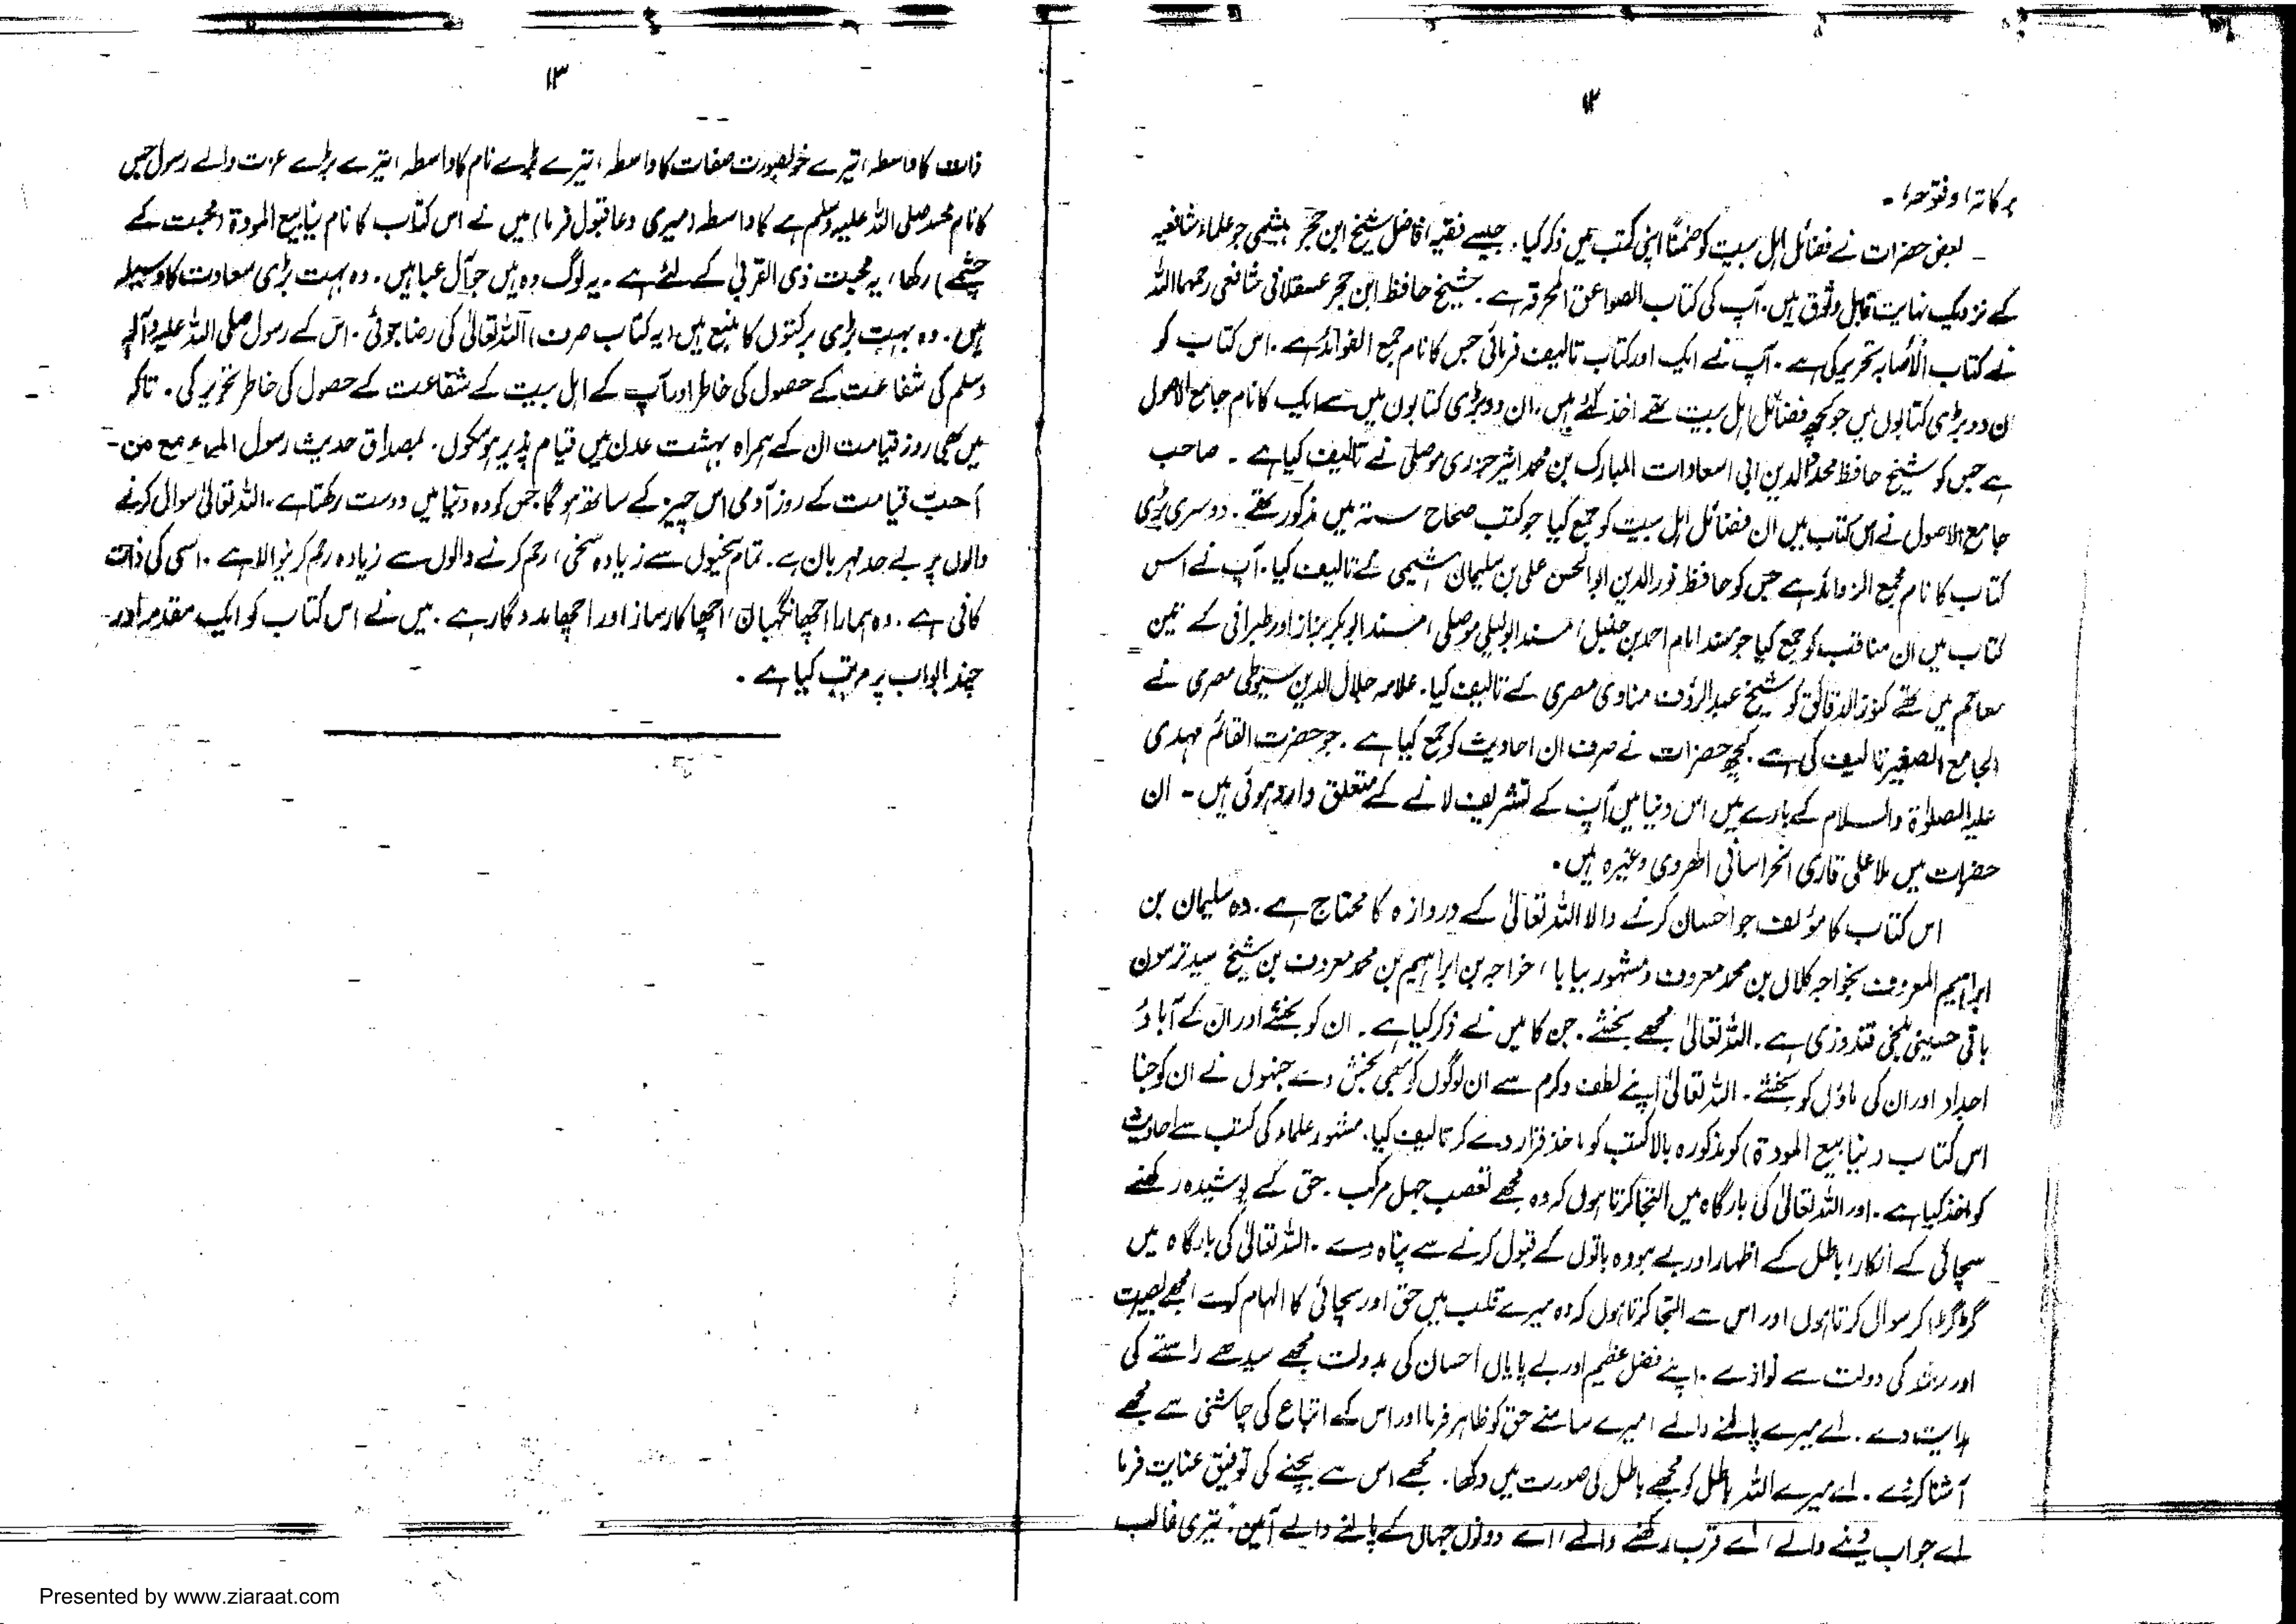 ۱۲
برکاتہ، وفتوحہ، -
بعض حضرات نے فضائل اہل بیت کو ضمناً اپنی کتب میں ذکر کیا۔ جیسے فقیہ، فاضل شیخ ابن حجر ہیثمی جو علماء شافعیہ
کے نزدیک نہایت قابل وثوق ہیں۔ آپ کی کتاب الصواعق المحرقہ ہے۔ شیخ حافظ ابن حجر عسقلانی شافعی رحمہا اللہ
نے کتاب الاصابہ تحریر کی ہے۔ آپ نے ایک اور کتاب تالیف فرمائی جس کا نام جمع الفوائد ہے۔ اس کتاب کو
ان دو بڑی کتابوں میں جو کچھ فضائل اہل بیت تھے اخذ کئے ہیں، ان دو بڑی کتابوں میں سے ایک کا نام جامع الاصول
ہے جس کو شیخ حافظ مجد الدین ابی اسعادات المبارک بن محمد اثیر جزری موصلی نے تالیف کیا ہے ۔ صاحب
جامع الاصول نے اس کتاب میں ان فضائل اہل بیت کو جمع کیا جو کتب صحاح ستہ میں مذکور تھے۔ دوسری بڑی
کتاب کا نام مجمع الزوائد ہے جس کو حافظ نور الدین ابوالحسن علی بن سلیمان ہشیمی نے تالیف کیا۔ آپ نے اس
کتاب میں ان مناقب کو جمع کیا جو مسند امام احمد بن حنبل، مسند ابو لیلی موصلی، مسند ابوبکر بزاز اور طبرانی کے تین
معاجم میں تھے کنوز الدقائق کو شیخ عبدالرؤف مناوی مصری نے تالیف کیا۔ علامہ جلال الدین سیوطی مصری نے
الجامع الصغیر تالیف کی ہے۔ کچھ حضرات نے صرف ان احادیث کو جمع کیا ہے۔ جو حضرت القائم مہدی
علیہ الصلوٰۃ والسلام کے بارے میں اس دنیا میں آپ کے تشریف لانے کے متعلق وارد ہوئی ہیں - ان
حضرات میں ملا علی قاری الخراسانی الھروی وغیرہ ہیں۔
اس کتاب کا مؤلف جو احسان کرنے والا اللہ تعالیٰ کے دروازہ کا محتاج ہے۔ وہ سلیمان بن
ابراہیم المعروف بخواجہ کلال بن محمد معروف ومشہور ببابا، خواجہ بن ابراہیم بن محمد معروف بن شیخ سید ترسون
باقی حسینی بلخی قندوزی ہے۔ اللہ تعالیٰ مجھے بخشے۔ جن کا میں نے ذکر کیا ہے۔ ان کو بخشے اور ان کے آباؤ
اجداد اور ان کی ماؤں کو بخشے۔ اللہ تعالیٰ اپنے لطف وکرم سے ان لوگوں کو بھی بخش دے جنہوں نے ان کو جنا
اس کتاب (ینابیع المودۃ) کو مذکورہ بالا کتب کو ماخذ قرار دے کر تالیف کیا۔ مشہور علماء کی کتب سے احادیث
کو اخذ کیا ہے۔ اور اللہ تعالیٰ کی بارگاہ میں التجا کرتا ہوں کہ وہ مجھے تعصب جہل مرکب۔ حق کے پوشیدہ رکھنے
سچائی کے انکار، باطل کے اظہار اور بے ہودہ باتوں کے قبول کرنے سے پناہ دے۔ اللہ تعالیٰ کی بارگاہ میں
گڑگڑا کر سوال کرتا ہوں اور اس سے التجا کرتا ہوں کہ وہ میرے قلب میں حق اور سچائی کا الہام کرے، مجھے بصیرت
اور رشد کی دولت سے نوازے۔ اپنے فضل عظیم اور بے پایاں احسان کی بدولت مجھے سیدھے راستے کی
ہدایت دے۔ اے میرے پالنے والے، میرے سامنے حق کو ظاہر فرما اور اس کے اتباع کی چاشنی سے مجھے
آشنا کر دے۔ اے میرے اللہ باطل کو مجھے باطل کی صورت میں دکھا۔ مجھے اس سے بچنے کی توفیق عنایت فرما
اے جواب دینے والے، اے قرب رکھنے والے، اے دونوں جہاں کے پالنے والے آمین۔ تیری غالب
۱۳
ذات کا واسطہ، تیرے خوبصورت صفات کا واسطہ، تیرے بڑے نام کا واسطہ، تیرے بڑے عزت والے رسول جس
کا نام محمد صلی اللہ علیہ وسلم ہے کا واسطہ (میری دعا قبول فرما) میں نے اس کتاب کا نام ینابیع المودۃ (محبت کے
چشمے) رکھا، یہ محبت ذی القربیٰ کے لئے ہے۔ یہ لوگ وہ ہیں جو آل عبا ہیں۔ وہ بہت بڑی سعادت کا وسیلہ
ہیں۔ وہ بہت بڑی برکتوں کا منبع ہیں (یہ کتاب صرف) اللہ تعالیٰ کی رضا جوئی۔ اس کے رسول صلی اللہ علیہ وآلہ
وسلم کی شفاعت کے حصول کی خاطر اور آپ کے اہل بیت کے شفاعت کے حصول کی خاطر تحریر کی۔ تاکہ
میں بھی روز قیامت ان کے ہمراہ بہشت عدن میں قیام پذیر ہو سکوں۔ بمصداق حدیث رسول المرء مع من -
احبّ قیامت کے روز آدمی اس چیز کے ساتھ ہو گا جس کو وہ دنیا میں دوست رکھتا ہے۔ اللہ تعالیٰ سوال کرنے
والوں پر بے حد مہربان ہے۔ تمام سخیوں سے زیادہ سخی، رحم کرنے والوں سے زیادہ رحم کرنیوالا ہے۔ اسی کی ذات
کافی ہے۔ وہ ہمارا اچھا نگہبان، اچھا کارساز اور اچھا مددگار ہے۔ میں نے اس کتاب کو ایک مقدمہ اور
چند ابواب پر مرتب کیا ہے۔
Presented by www.ziaraat.com